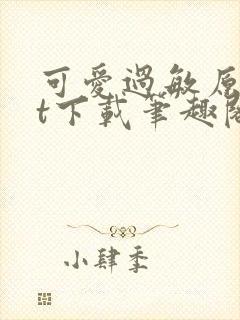 可愛過敏原
t下載筆趣閣
小肆季